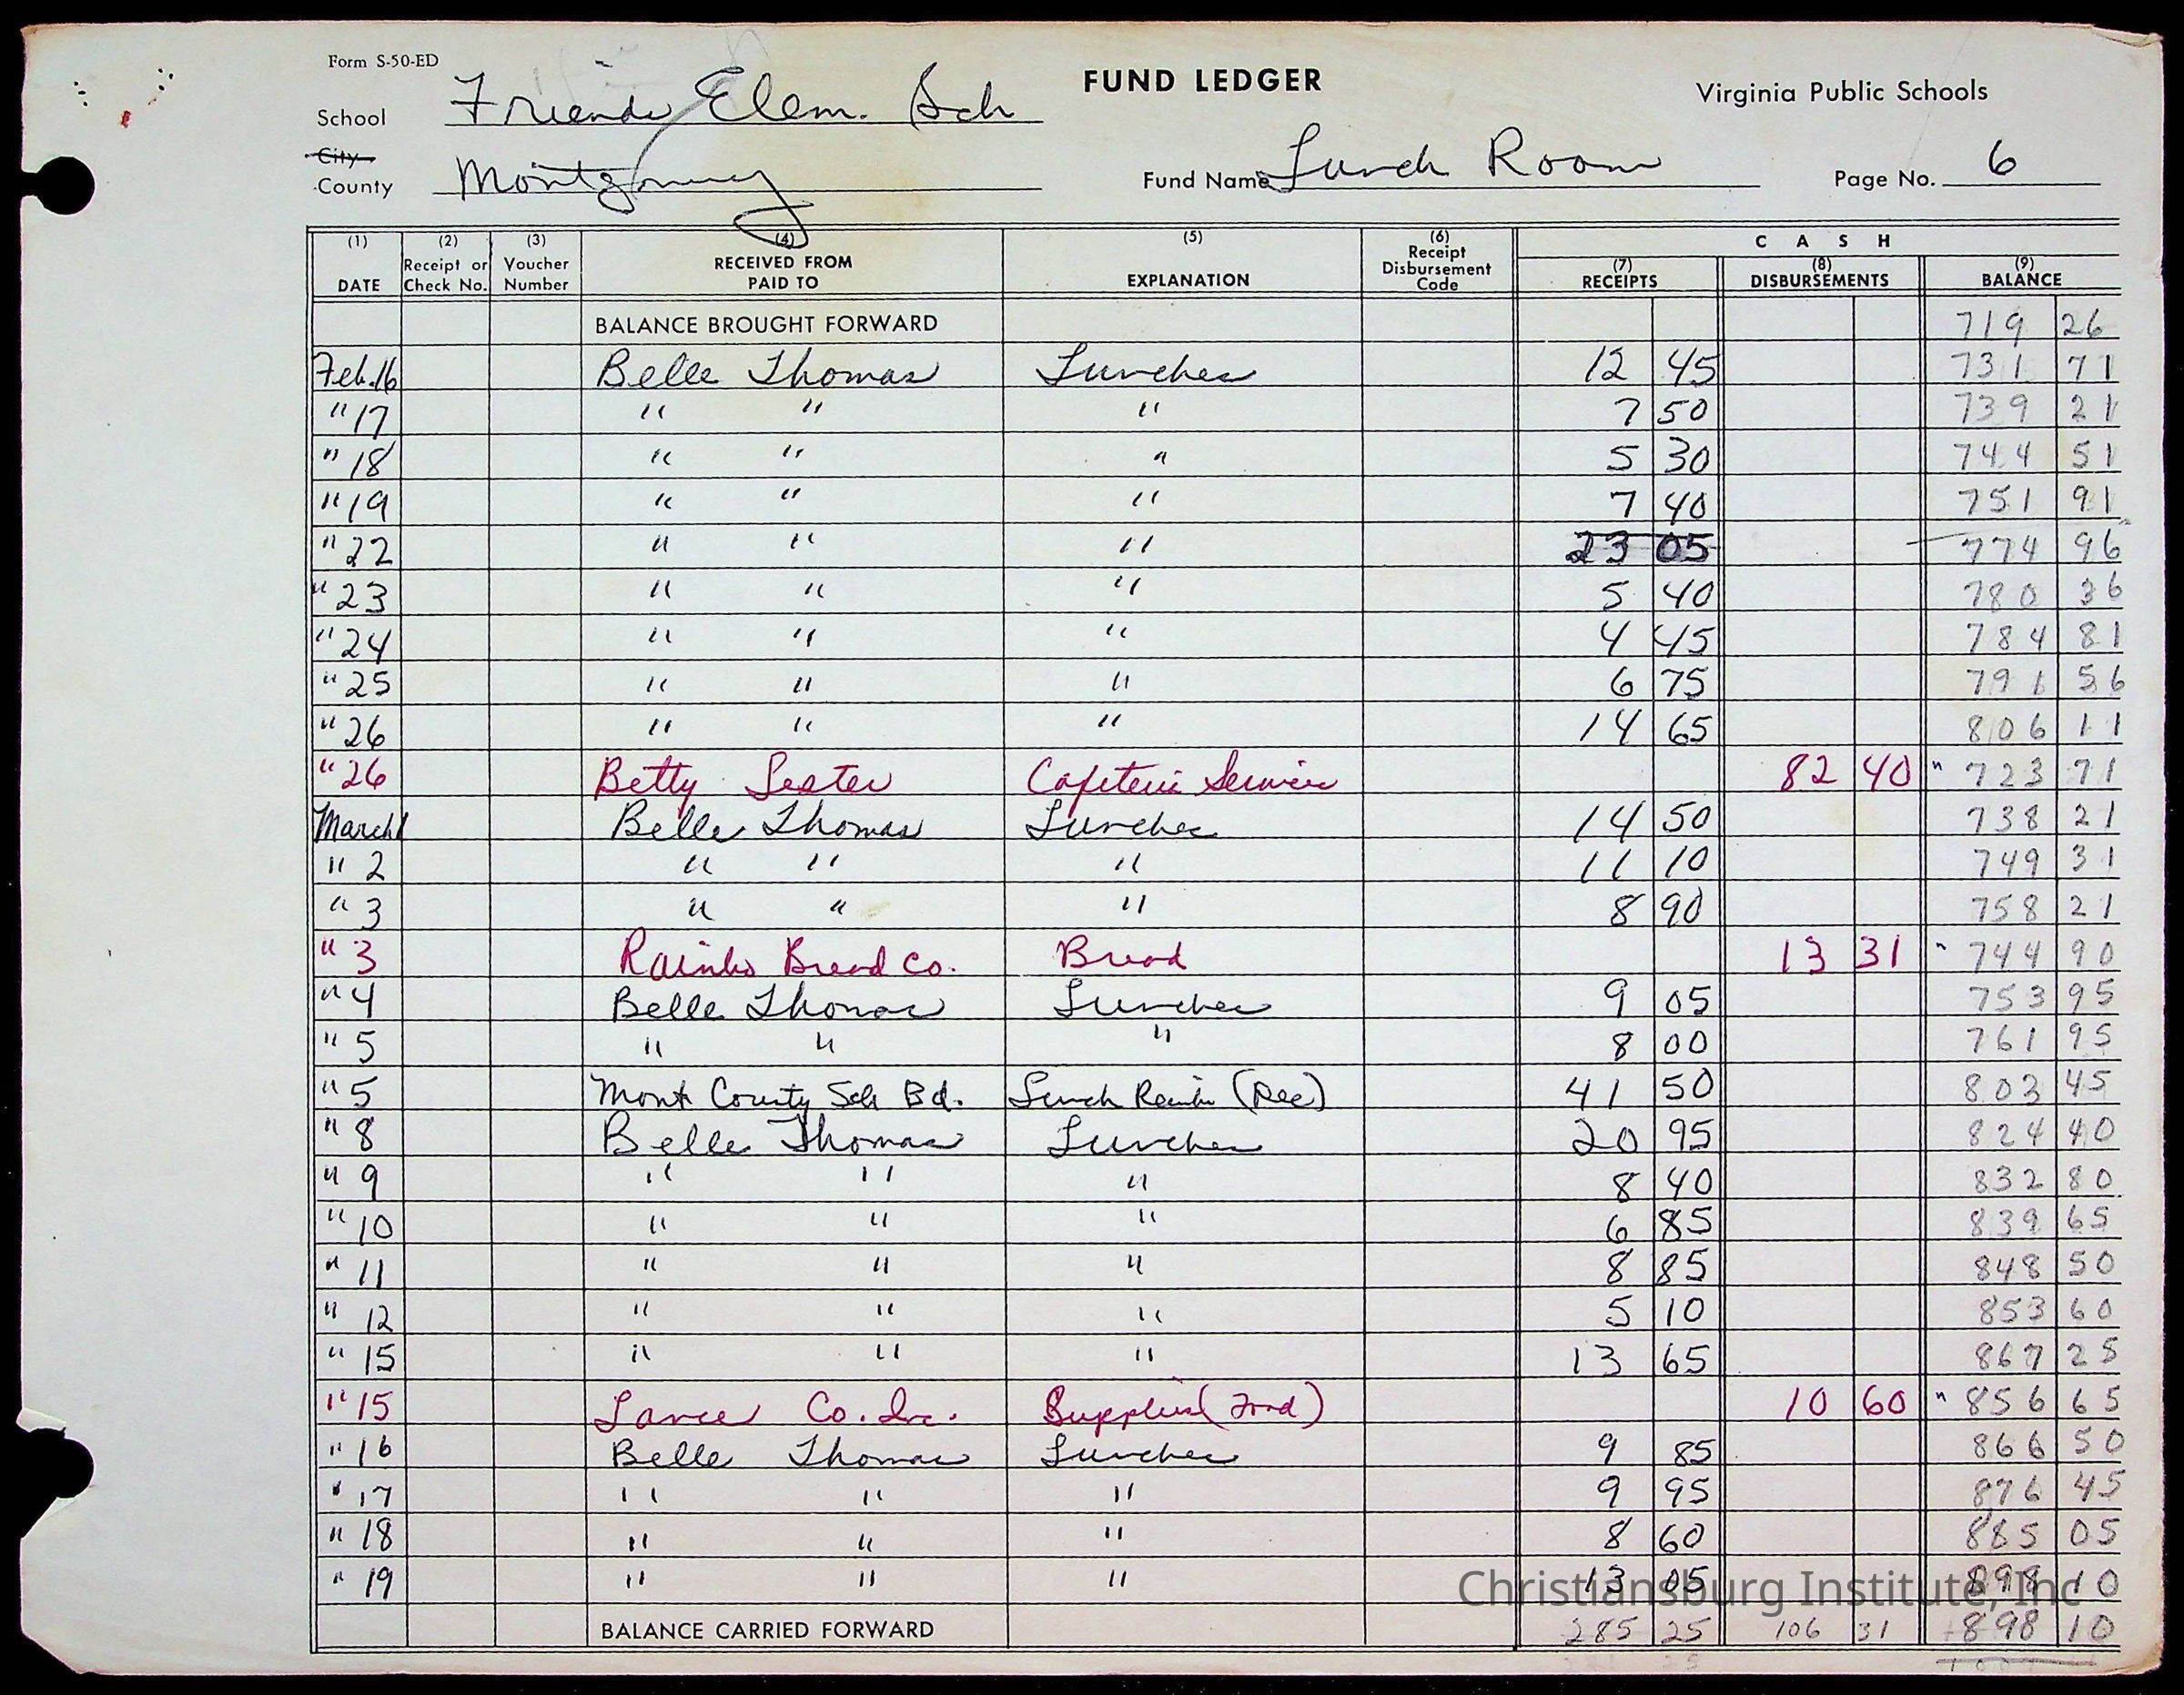 Form S-50-ED
FUND LEDGER
Virginia Public Schools
School Friends Elem. Sch
City
County Montgomery
Fund Name Lunch Room
Page No. 6
(1) DATE (2) Receipt or Check No. (3) Voucher Number (4) RECEIVED FROM PAID TO (5) EXPLANATION (6) Receipt Disbursement Code CASH (7) RECEIPTS (8) DISBURSEMENTS (9) BALANCE
BALANCE BROUGHT FORWARD 719 26
Feb. 16 Belle Thomas Lunches 12 45 731 71
" 17 " " " 7 50 739 21
" 18 " " " 5 30 744 51
" 19 " " " 7 40 751 91
" 22 " " " 23 05 774 96
" 23 " " " 5 40 780 36
" 24 " " " 4 45 784 81
" 25 " " " 6 75 791 56
" 26 " " " 14 65 806 11
" 26 Betty Lester Cafeteria Service 82 40 " 723 71
March 1 Belle Thomas Lunches 14 50 738 21
" 2 " " " 11 10 749 31
" 3 " " " 8 90 758 21
" 3 Rainbo Bread Co. Bread 13 31 " 744 90
" 4 Belle Thomas Lunches 9 05 753 95
" 5 " " " 8 00 761 95
" 5 Mont County Sch Bd. Lunch Reimb (Dec) 41 50 803 45
" 8 Belle Thomas Lunches 20 95 824 40
" 9 " " " 8 40 832 80
" 10 " " " 6 85 839 65
" 11 " " " 8 85 848 50
" 12 " " " 5 10 853 60
" 15 " " " 13 65 867 25
" 15 Lance Co. Inc. Supplies (Food) 10 60 " 856 65
" 16 Belle Thomas Lunches 9 85 866 50
" 17 " " " 9 95 876 45
" 18 " " " 8 60 885 05
" 19 " " " 13 05 898 10
Christiansburg Institute, Inc
BALANCE CARRIED FORWARD 285 25 106 31 898 10